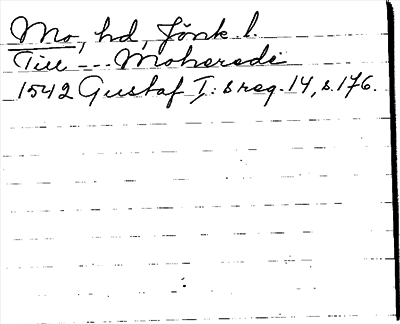 Mo, hd, Jönk. l.
Till --- Moherede
1542 Gustaf I: s reg. 14, s. 176.